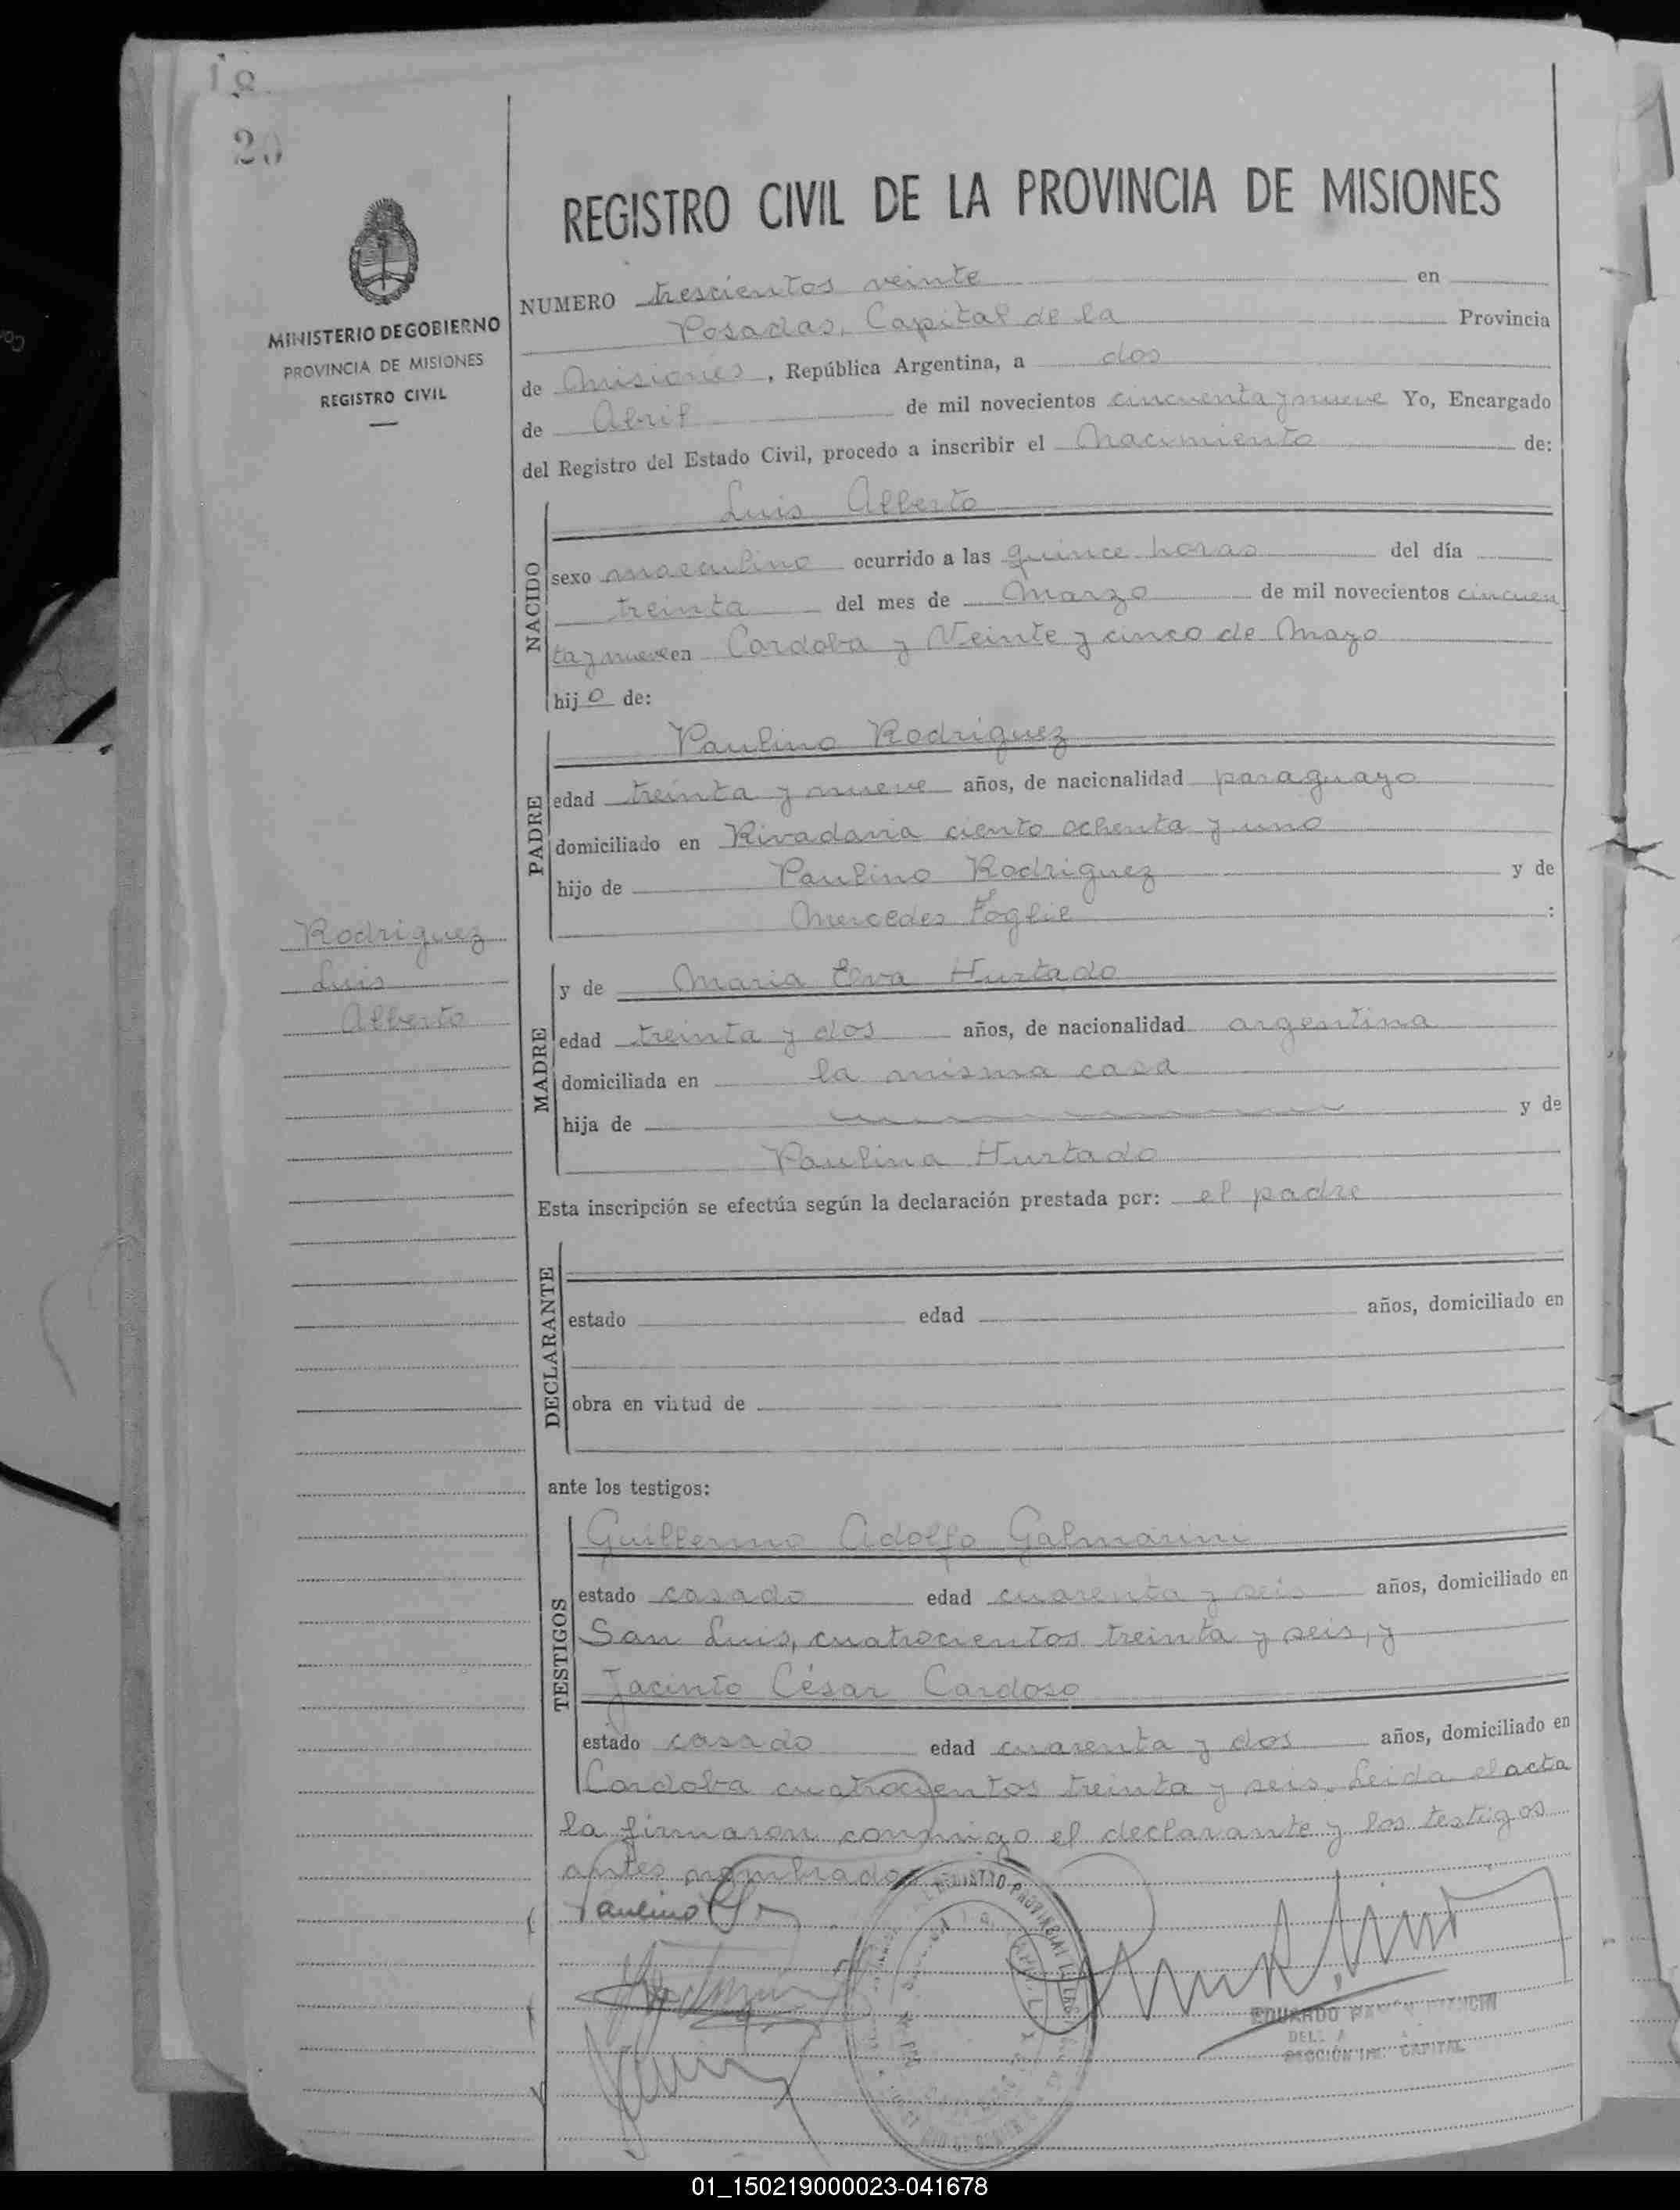 20
MINISTERIO DE GOBIERNO
PROVINCIA DE MISIONES
REGISTRO CIVIL
Rodriguez
Luis
Alberto
REGISTRO CIVIL DE LA PROVINCIA DE MISIONES
NUMERO trescientos veinte en
Posadas, Capital de la Provincia
de Misiones, República Argentina, a dos
de Abril de mil novecientos cincuenta y nueve Yo, Encargado
del Registro del Estado Civil, procedo a inscribir el Nacimiento de:
NACIDO
Luis Alberto
sexo masculino ocurrido a las quince horas del día
treinta del mes de Marzo de mil novecientos cincuen
ta y nueve en Cordoba y Veinte y cinco de Mayo
hijo de:
PADRE
Paulino Rodriguez
edad treinta y nueve años, de nacionalidad paraguayo
domiciliado en Rivadavia ciento ochenta y uno
hijo de Paulino Rodriguez y de
Mercedes :
MADRE
y de Maria Elva Hurtado
edad treinta y dos años, de nacionalidad argentina
domiciliada en la misma casa
hija de y de
Paulina Hurtado
Esta inscripción se efectúa según la declaración prestada por: el padre
DECLARANTE
estado edad años, domiciliado en
obra en virtud de
ante los testigos:
TESTIGOS
Guillermo Adolfo Galmarini
estado casado edad cuarenta y seis años, domiciliado en
San Luis, cuatrocientos treinta y seis, y
Jacinto César Cardoso
estado casado edad cuarenta y dos años, domiciliado en
Cordoba cuatrocientos treinta y seis. Leida el acta
la firmaron conmigo el declarante y los testigos
antes nombrados
Paulino
EDUARDO
SECCIÓN CAPITAL
01_150219000023-041678